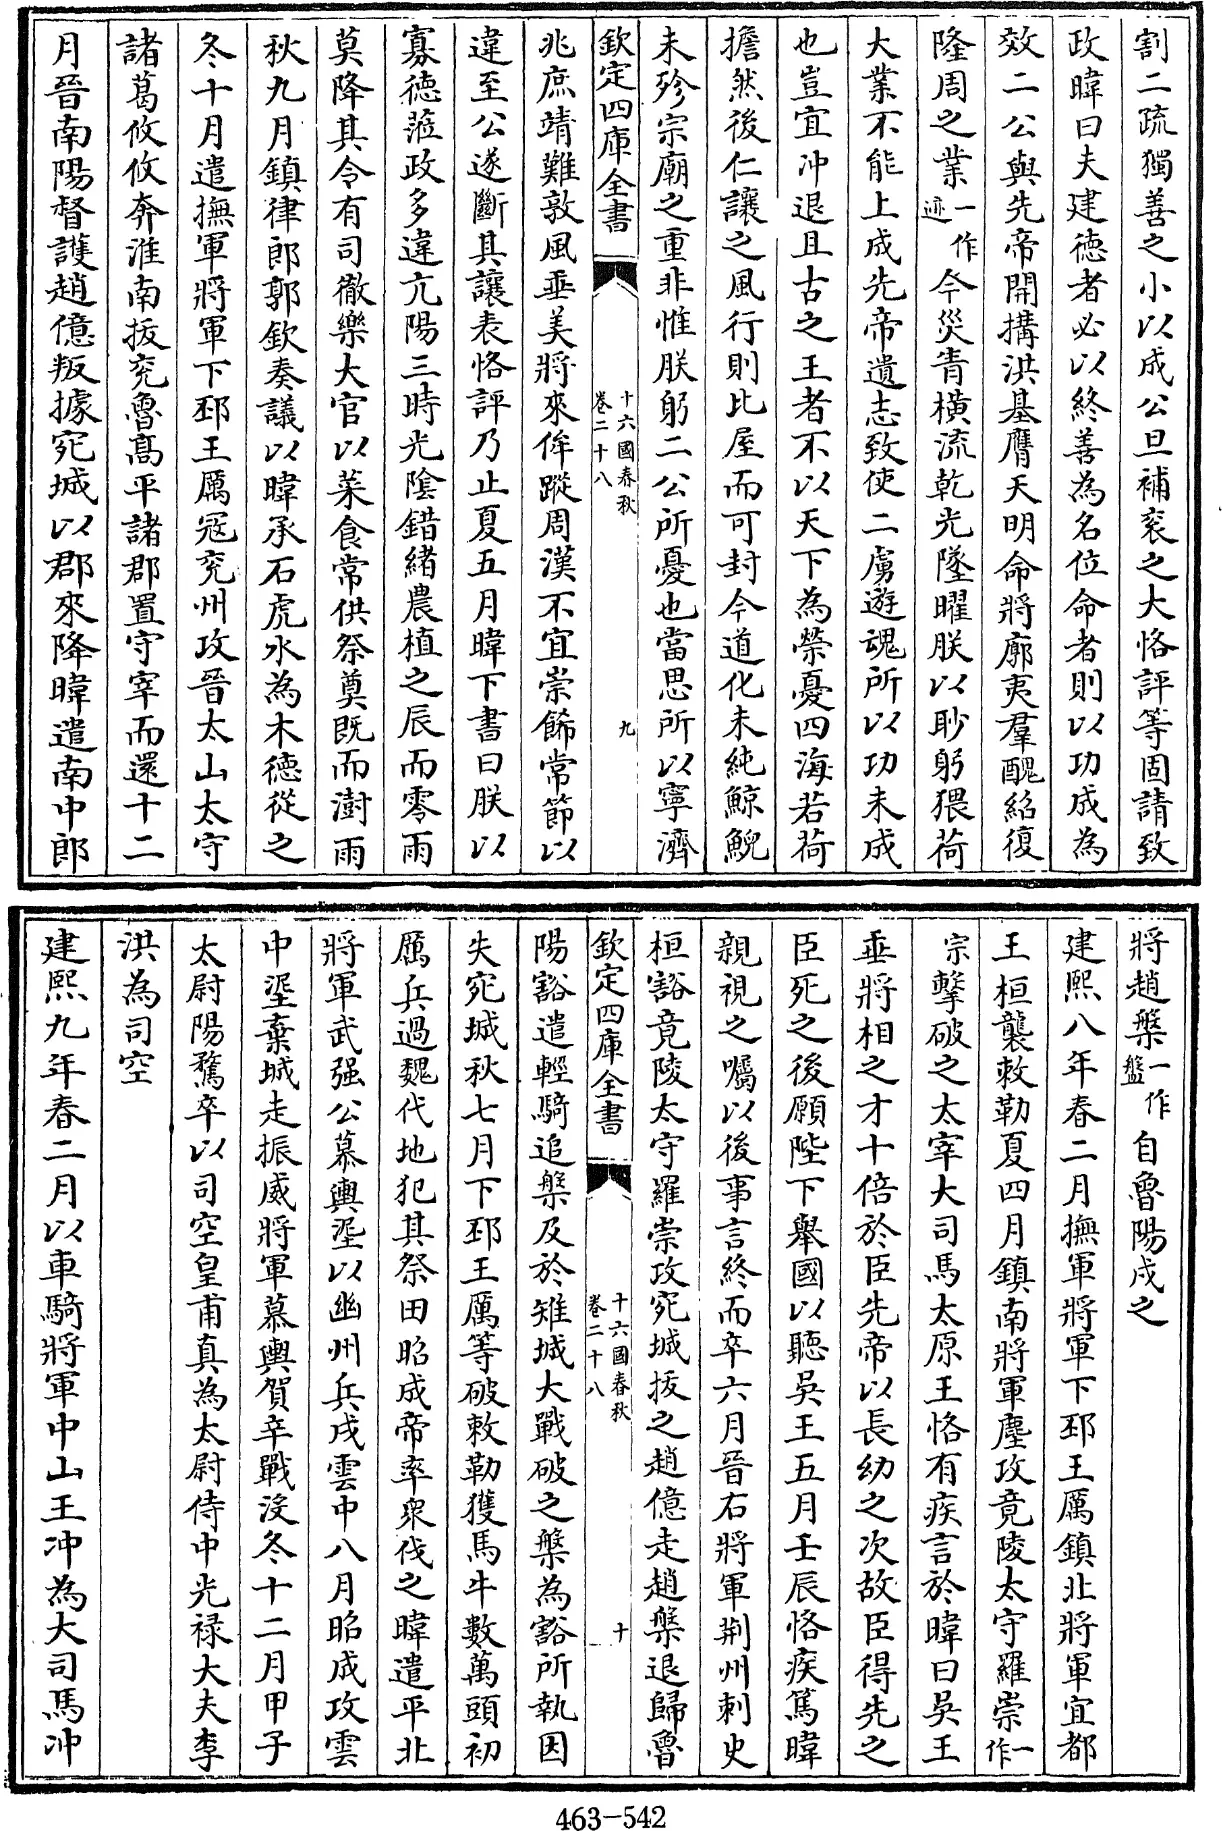 割二疏獨善之小以成公旦補衮之大恪評等固請致
政暐曰夫建徳者必以終善為名位命者則以功成為
效二公與先帝開搆洪基膺天明命將廓夷羣醜紹復
隆周之業一作迹今災青橫流乾光墜曜朕以眇躬猥荷
大業不能上成先帝遺志致使二虜遊魂所以功未成
也豈宜冲退且古之王者不以天下為榮憂四海若荷
擔然後仁讓之風行則比屋而可封今道化未純鯨鯢
未殄宗廟之重非惟朕躬二公所憂也當思所以寧濟
欽定四庫全書
十六國春秋
卷二十八
九
兆庶靖難敦風垂美將來侔蹤周漢不宜崇飾常節以
違至公遂斷其讓表恪評乃止夏五月暐下書曰朕以
寡徳蒞政多違亢陽三時光陰錯緒農植之辰而零雨
莫降其令有司徹樂大官以菜食常供祭奠既而澍雨
秋九月鎮律郎郭欽奏議以暐承石虎水為木徳從之
冬十月遣撫軍將軍下邳王厲冦兖州攻晉太山太守
諸葛攸攸奔淮南拔兖魯髙平諸郡置守宰而還十二
月晉南陽督護趙億叛據宛城以郡來降暐遣南中郎
將趙槃一作盤自魯陽戍之
建熙八年春二月撫軍將軍下邳王厲鎮北將軍宜都
王桓襲敕勒夏四月鎮南將軍塵攻竟陵太守羅崇一作
宗擊破之太宰大司馬太原王恪有疾言於暐曰吳王
垂將相之才十倍於臣先帝以長幼之次故臣得先之
臣死之後願陛下舉國以聽吳王五月壬辰恪疾篤暐
親視之囑以後事言終而卒六月晉右將軍荆州刺史
桓豁竟陵太守羅崇攻宛城拔之趙億走趙槃退歸魯
欽定四庫全書
十六國春秋
卷二十八
十
陽豁遣輕騎追槃及於雉城大戰破之槃為豁所執因
失宛城秋七月下邳王厲等破敕勒獲馬牛數萬頭初
厲兵過魏代地犯其祭田昭成帝率衆伐之暐遣平北
將軍武强公慕輿埿以幽州兵戍雲中八月昭成攻雲
中埿棄城走振威將軍慕輿賀辛戰没冬十二月甲子
太尉陽騖卒以司空皇甫真為太尉侍中光禄大夫李
洪為司空
建熙九年春二月以車騎將軍中山王冲為大司馬冲
463-542